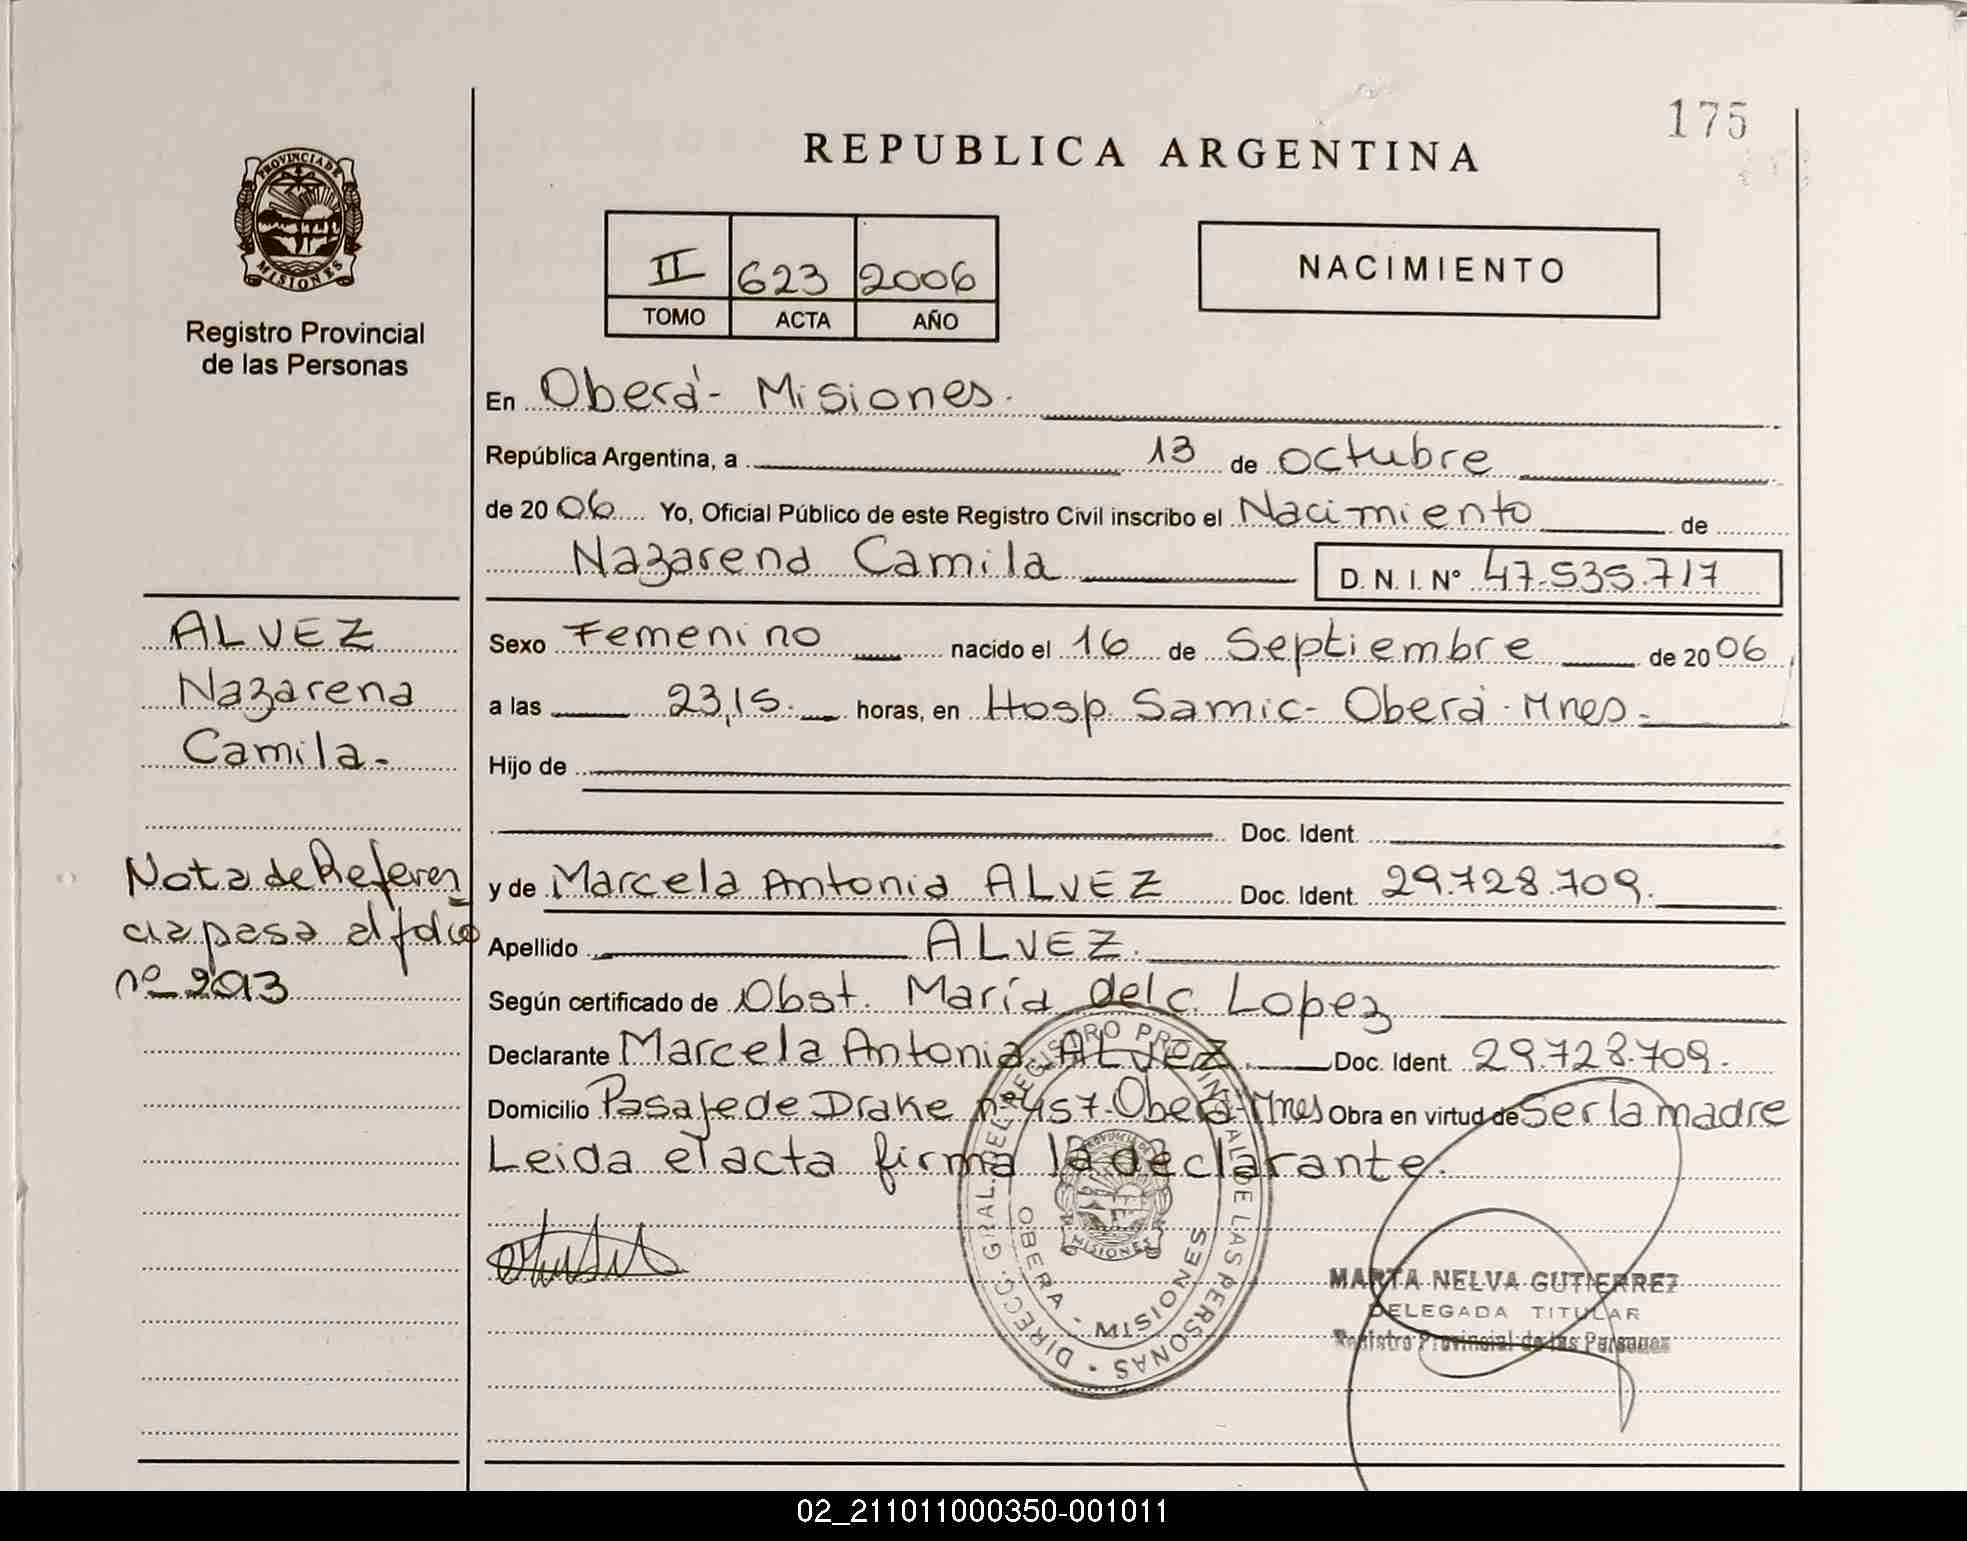 175
REPUBLICA ARGENTINA
PROVINCIA DE
MISIONES
Registro Provincial
de las Personas
II 623 2006
TOMO ACTA AÑO
NACIMIENTO
En Oberá - Misiones.
República Argentina, a 13 de octubre
de 2006 Yo, Oficial Público de este Registro Civil inscribo el Nacimiento de
Nazarena Camila D. N. I. N° 47.535.717
ALVEZ
Nazarena
Camila.-
Sexo Femenino nacido el 16 de Septiembre de 2006
a las 23,15. horas, en Hosp. Samic - Oberá - Mnes.
Hijo de
Doc. Ident.
y de Marcela Antonia ALVEZ Doc. Ident. 29.728.709.
Nota de Referen
cia pasa al folio
nº
Apellido ALVEZ.
Según certificado de Obst. María del c. Lopez
Declarante Marcela Antonia ALVEZ. Doc. Ident. 29.728.709.
Domicilio Pasaje de Drake nº 457 - Oberá - Mnes Obra en virtud de Ser la madre
Leida el acta firma la declarante.
DIRECC. GRAL. DEL REGISTRO PROVINCIAL DE LAS PERSONAS
OBERA - MISIONES
PROVINCIA DE
MISIONES
MARTA NELVA GUTIERREZ
DELEGADA TITULAR
Registro Provincial de las Personas
02_211011000350-001011